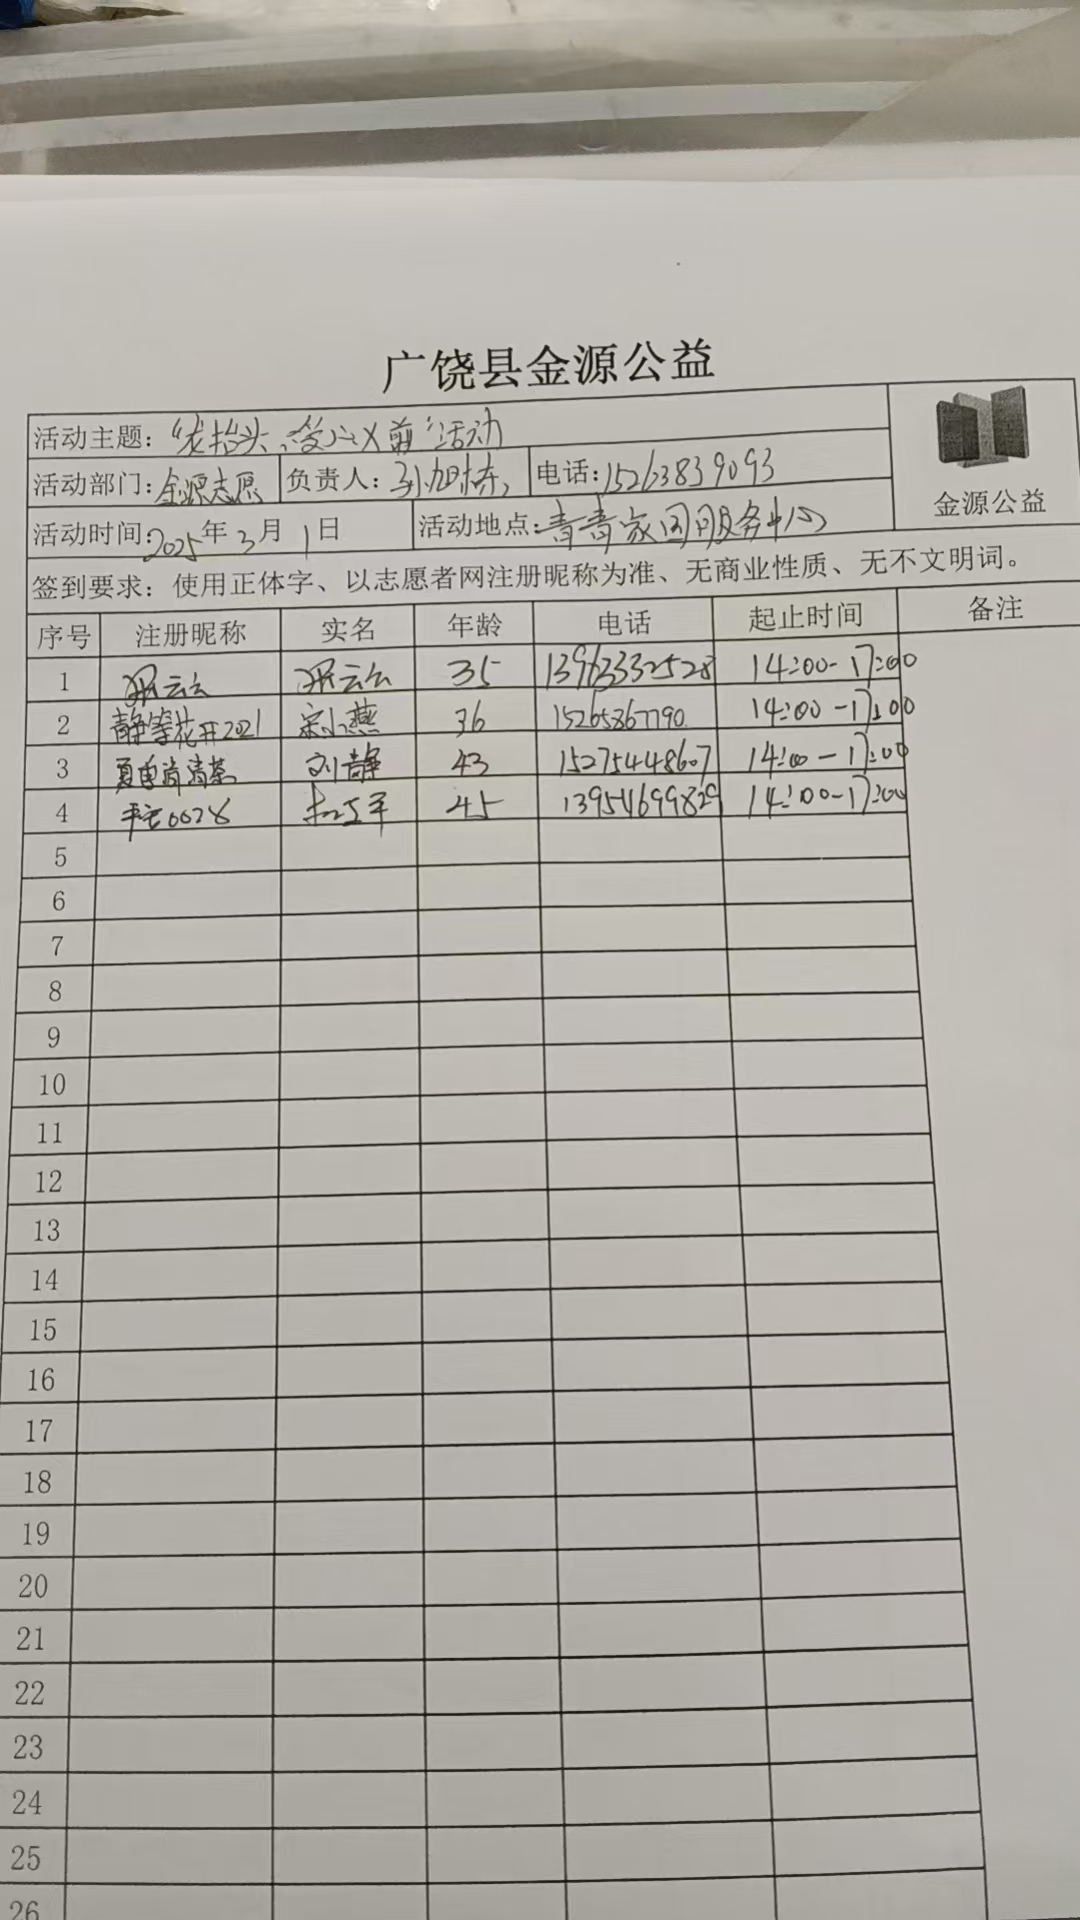 广饶县金源公益
活动主题:“龙抬头、爱心义剪”活动
活动部门:金源志愿 负责人:孙旭栋 电话:15263839093
金源公益
活动时间:2025年3月1日 活动地点:青青家园服务中心
签到要求:使用正体字、以志愿者网注册昵称为准、无商业性质、无不文明词。
序号 注册昵称 实名 年龄 电话 起止时间 备注
1 云云 云云 35 13963332528 14:00-17:00
2 静等花开2021 宋小燕 36 15265367790 14:00-17:00
3 清茶 刘静 43 15275448607 14:00-17:00
4 0028 45 13954699829 14:00-17:00
5
6
7
8
9
10
11
12
13
14
15
16
17
18
19
20
21
22
23
24
25
26